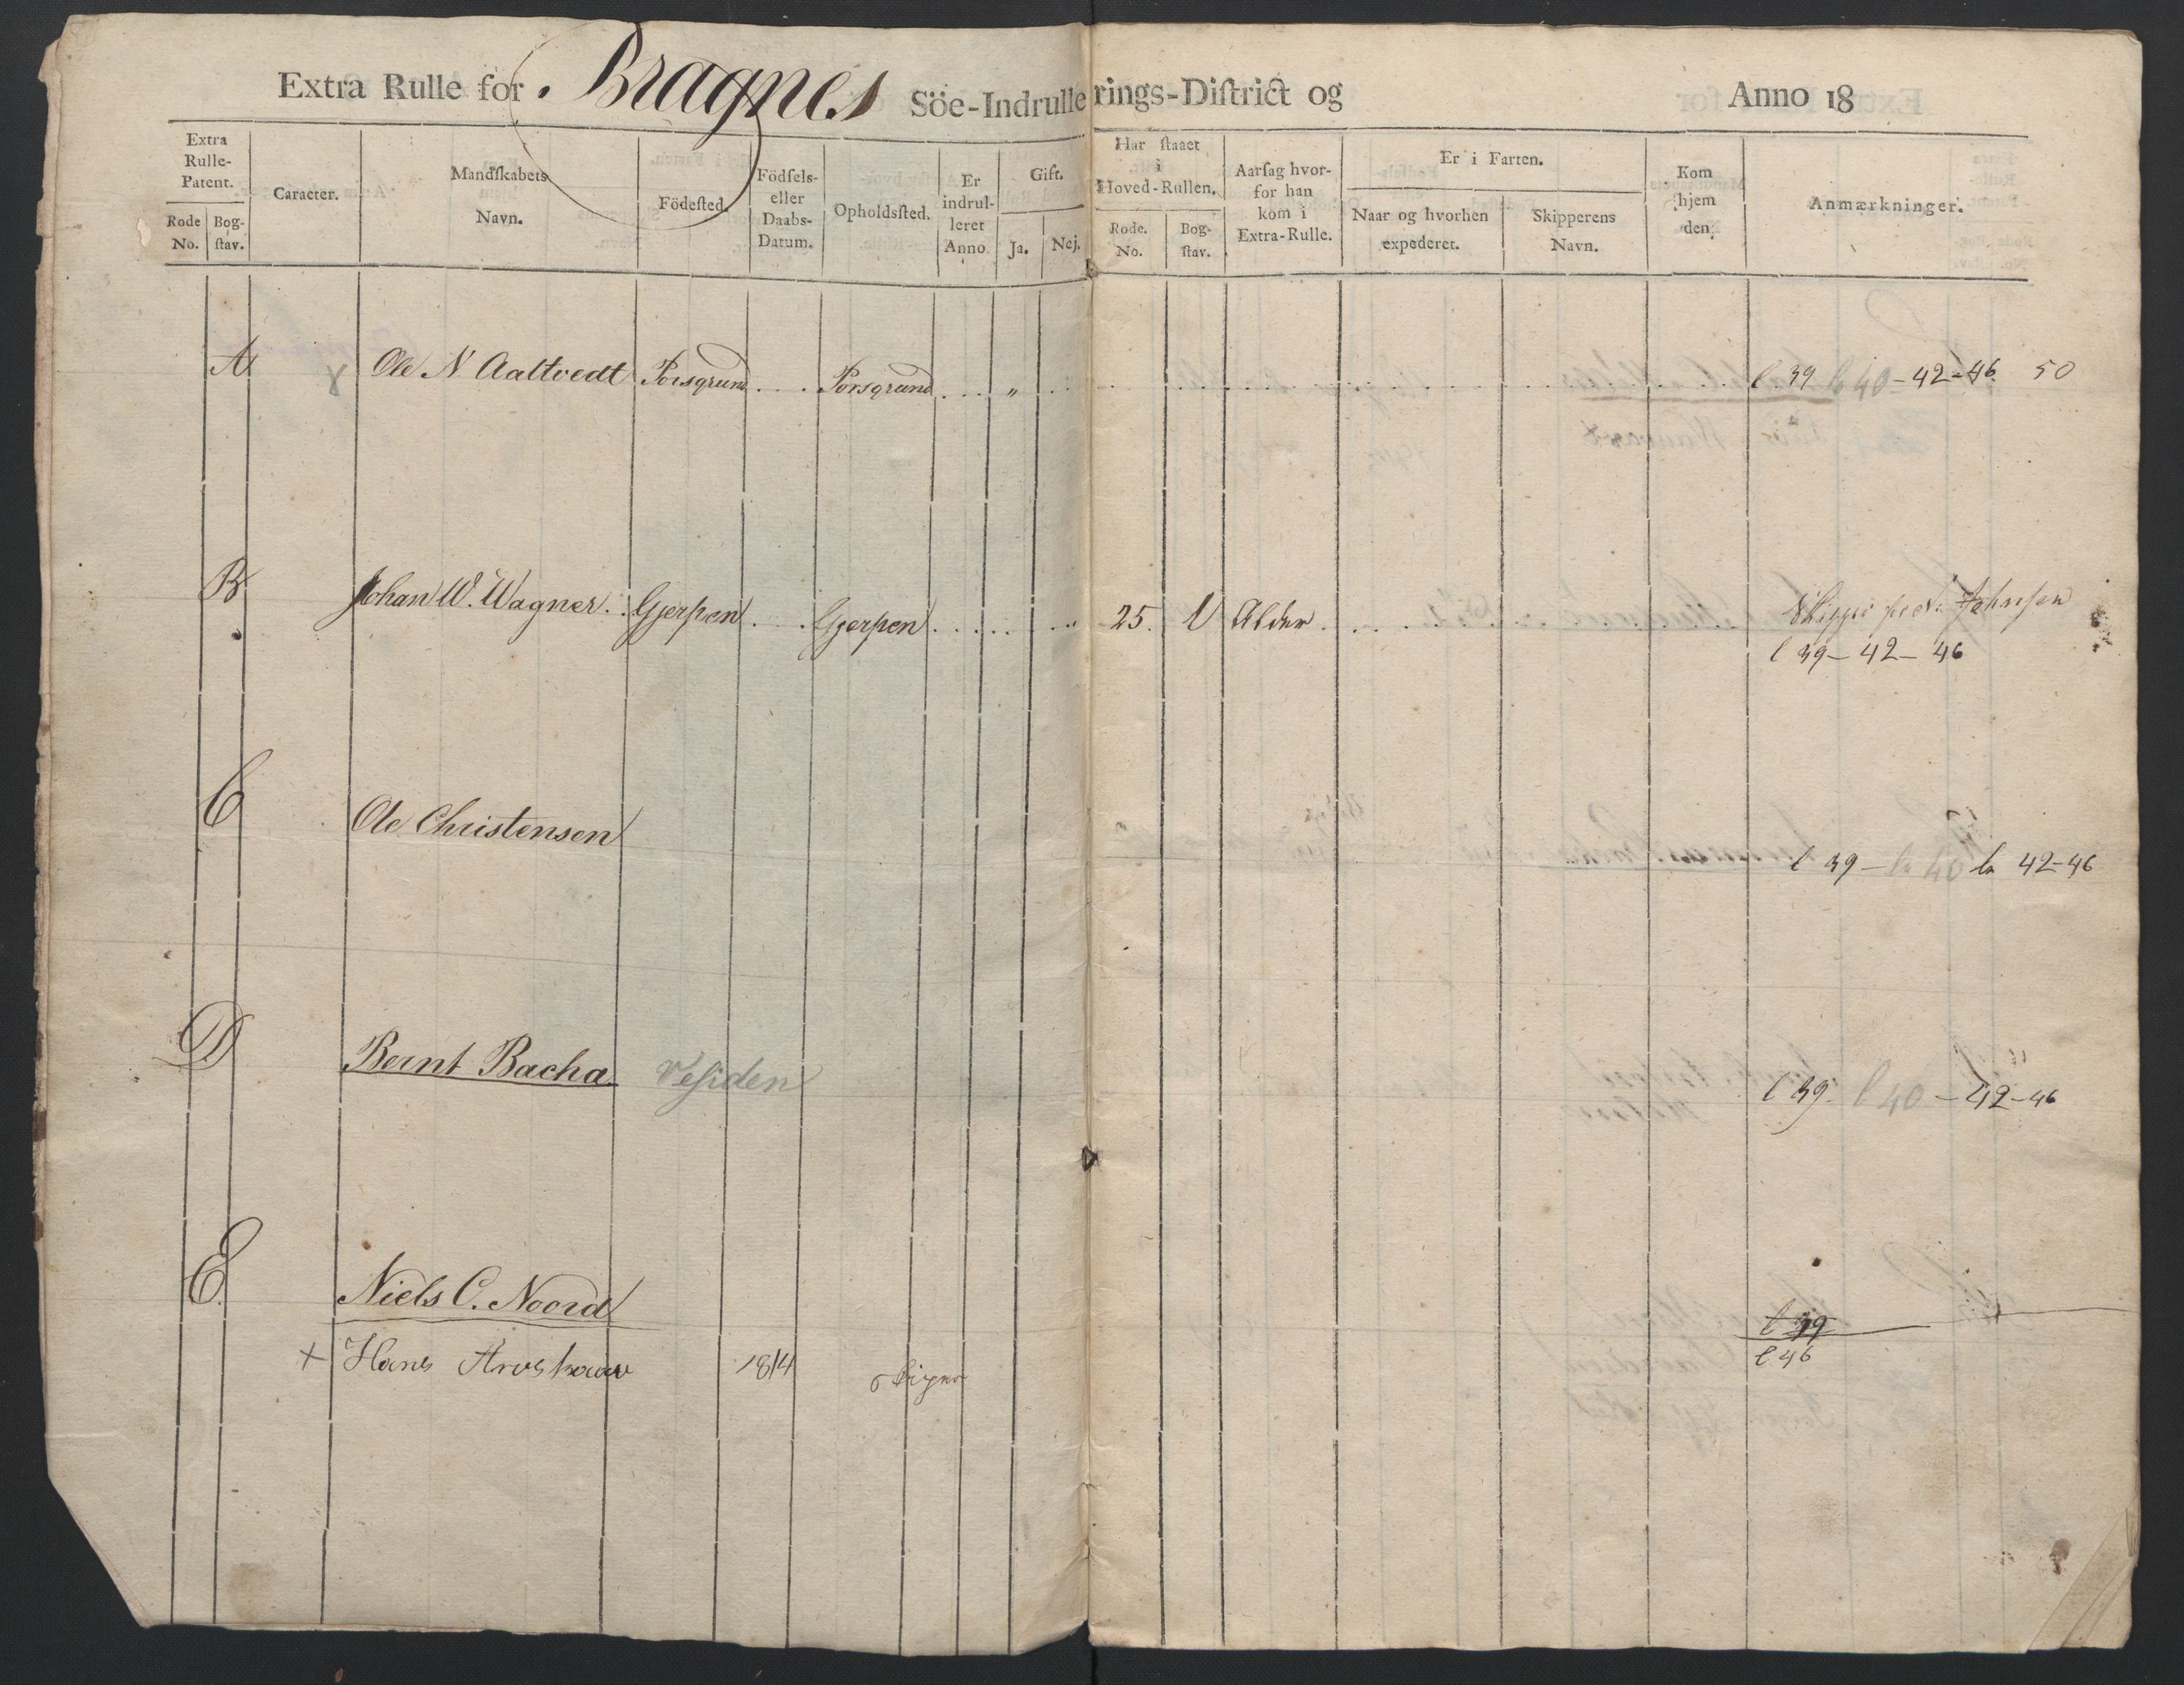 Extra Rulle for Bragnes Söe-Indrullerings-Diſtrict og Anno 18
Extra Rulle-Patent.
Rode No.
Bog-ſtav.
Caracter.
Mandſkabets Navn.
Födeſted.
Födſels- eller Daabs-Datum.
Opholdsſted.
Er indrul-leret Anno
Gift.
Ja.
Nej.
Har ſtaaet i Hoved-Rullen.
Rode. No.
Bog-ſtav.
Aarſag hvor-for han kom i Extra-Rulle.
Er i Farten.
Naar og hvorhen expederet.
Skipperens Navn.
Kom hjem den.
Anmærkninger.
A Ole N Aaltvedt Porsgrund .... Porsgrund ... „ l 39 l 40 - 42 - 46 50
B Johan W. Wagner. Gjerpen . . Gjerpen ..... „ 25. U Alder Johnsen
l 39 - 42 - 46
C Ole Christensen
l 39 - la 40 la 42-46
D Bernt Bacha Vesiden l 39. l 40 - 42-46
E. Niels C. Noord
l 39
+ Hans 1814
l 46